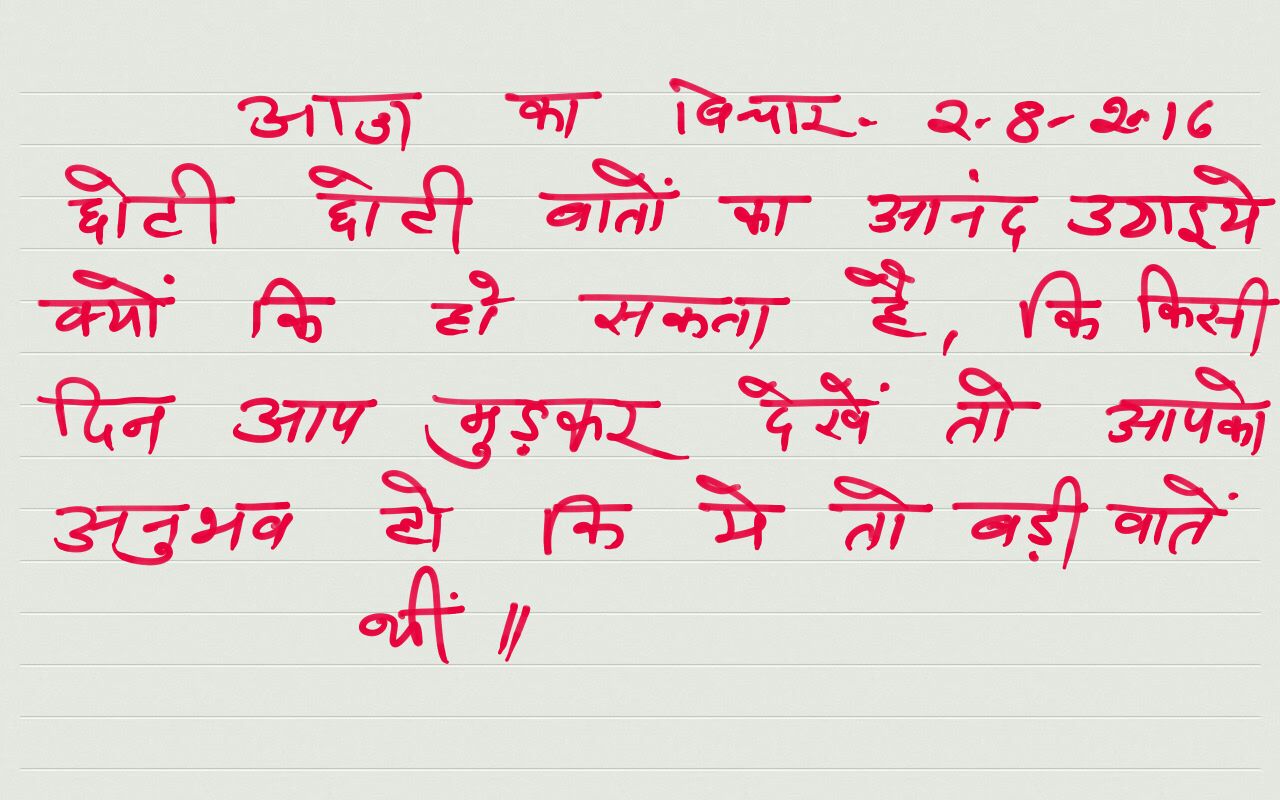 आज का विचार- 2-8-2016
छोटी छोटी बातों का आनंद उठाइये
क्यों कि हो सकता है, कि किसी
दिन आप मुड़कर देखें तो आपको
अनुभव हो कि ये तो बड़ी बातें
थीं ॥